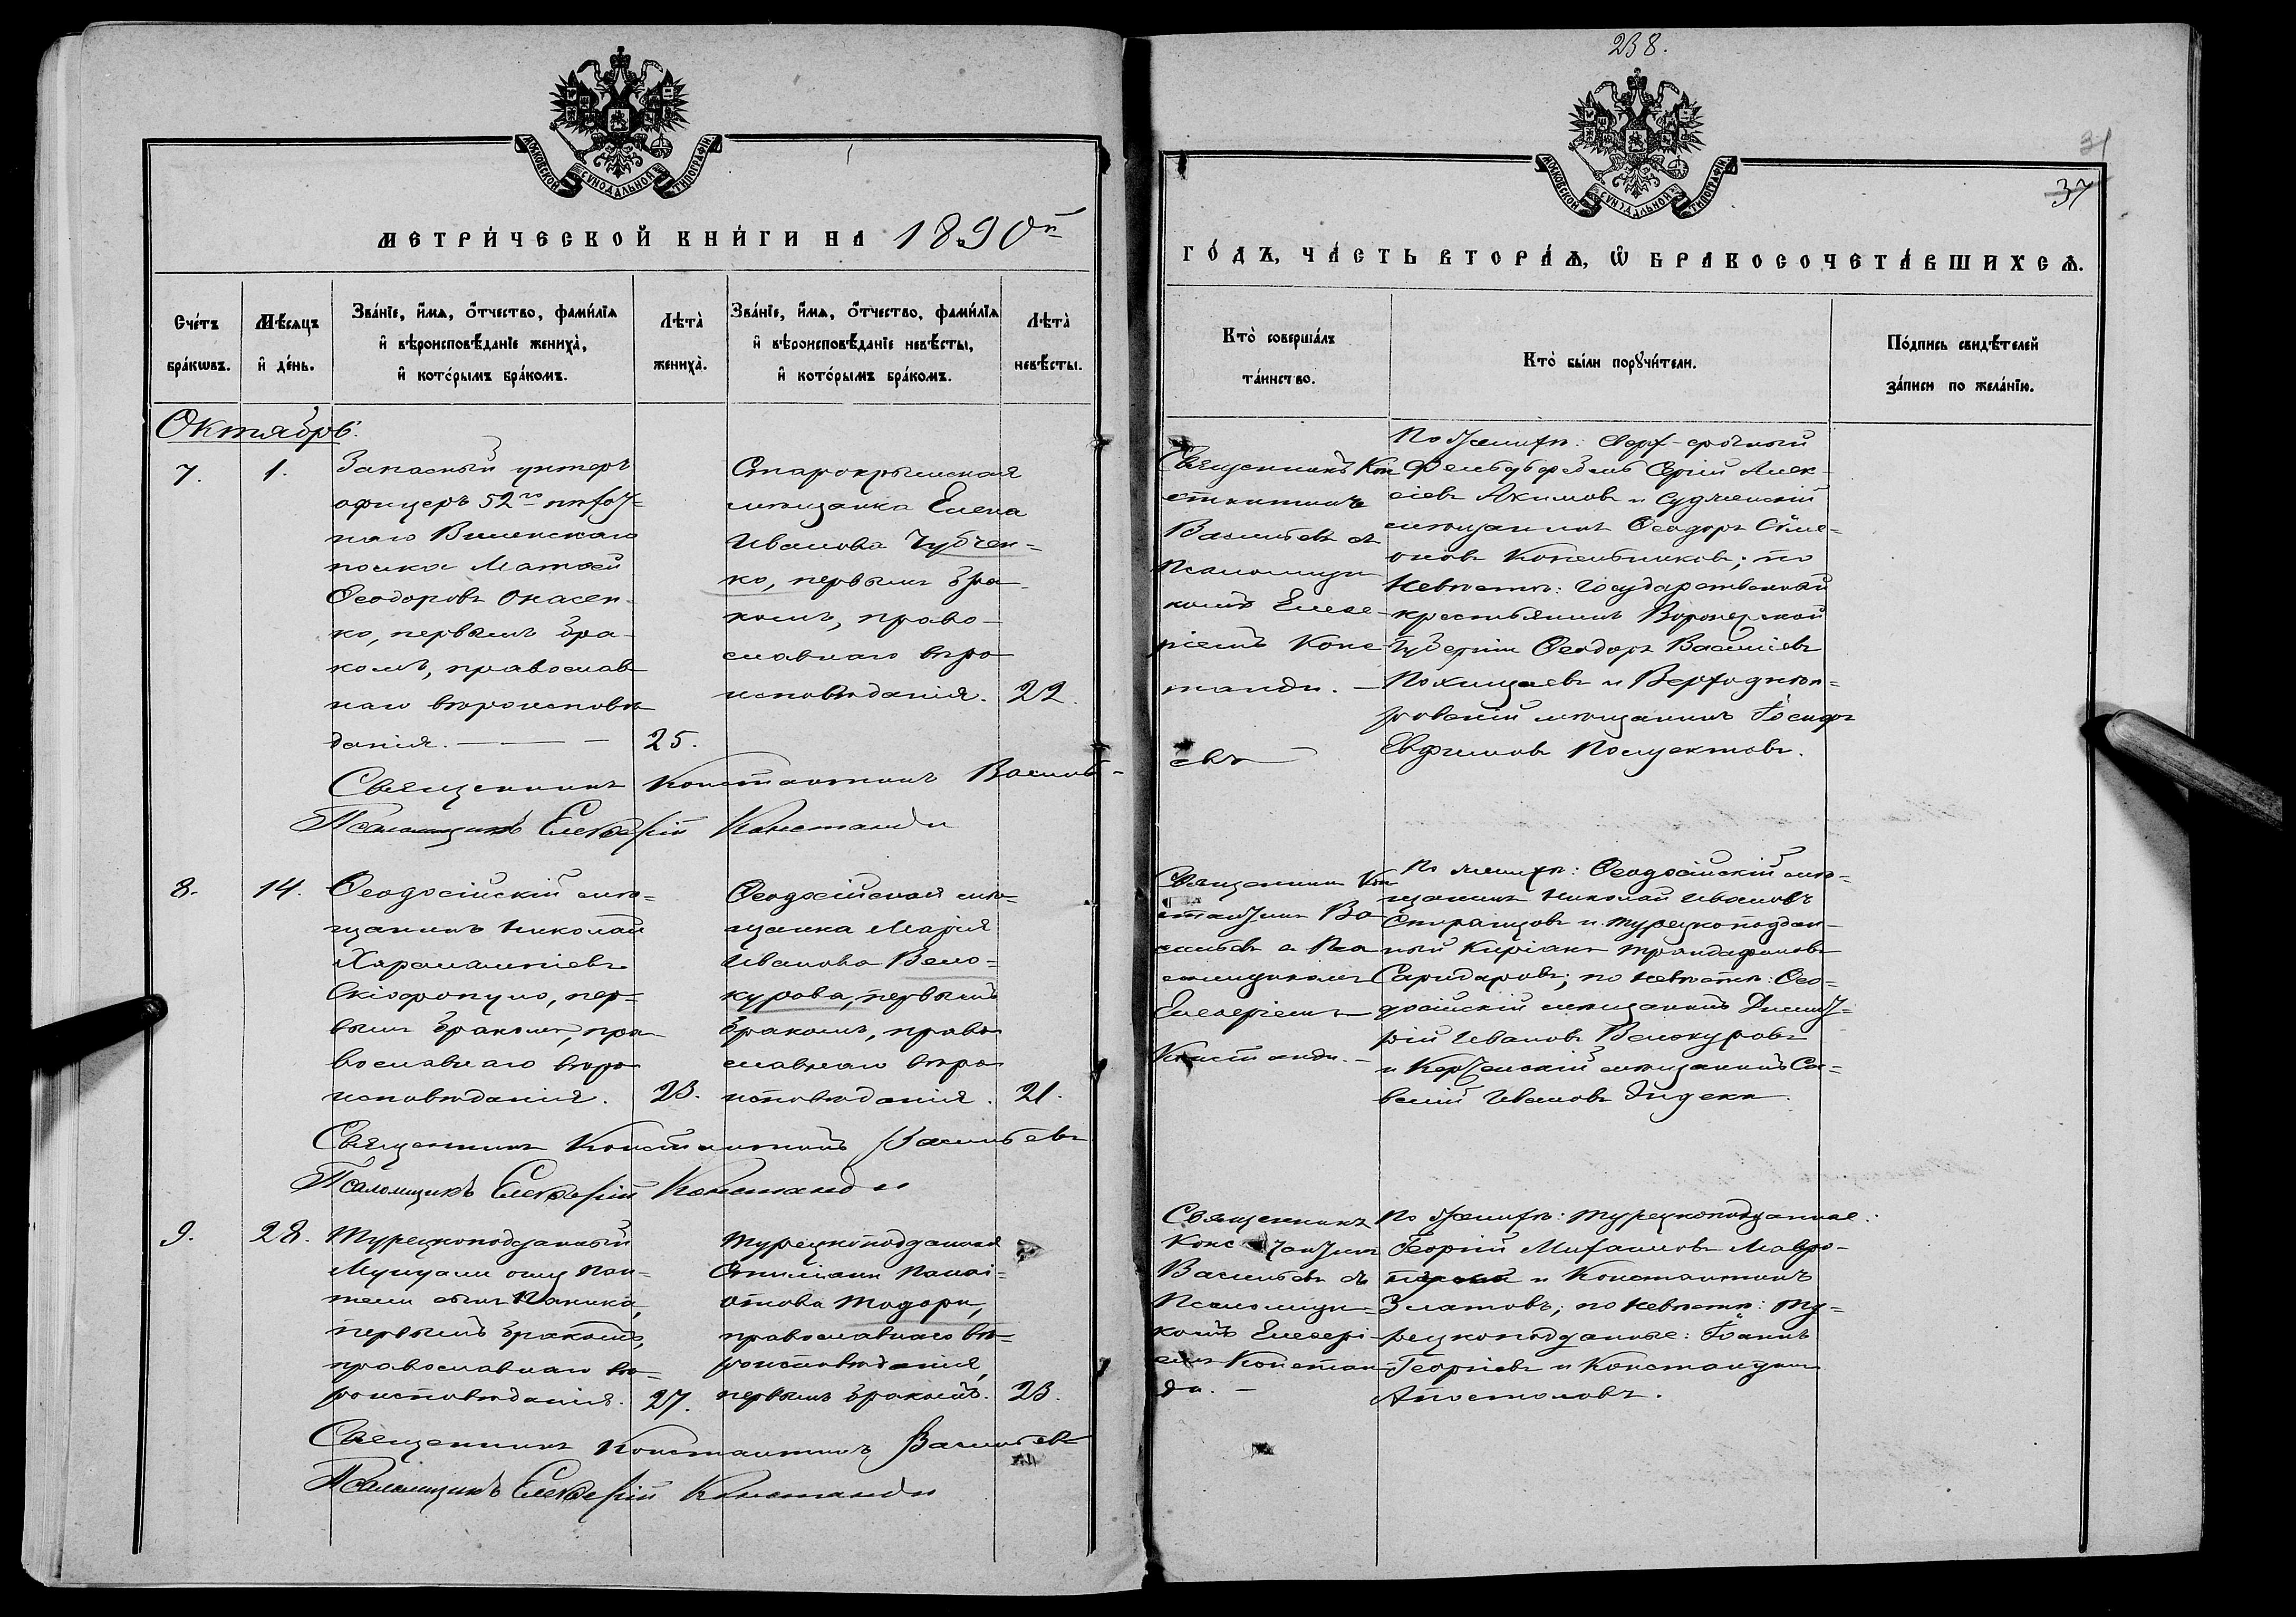 238.
31
37
МОСКОВСКОЙ СѴНОДАЛЬНОЙ ТИПОГРАФІИ
МОСКОВСКОЙ СѴНОДАЛЬНОЙ ТИПОГРАФІИ
МЕТРИ́ЧЕСКОЙ КНИ́ГИ НА 1890й
ГО́ДЪ, ЧА́СТЬ ВТОРА́Ѧ, Ѡ БРАКОСОЧЕТА́ВШИХСѦ.
Сче́тъ бра́кѡвъ.
Мѣ́сяцъ и҆ де́нь.
Зва́нїе, и҆́мѧ, ѻ҆́тчество, фами́лїѧ
и҆ вѣроисповѣ́данїе жениха̀,
и҆ кото́рымъ бра́комъ.
Лѣта̀ жениха̀.
Зва́нїе, и҆́мѧ, ѻ҆́тчество, фами́лїѧ
и҆ вѣроисповѣ́данїе невѣ́сты,
и҆ кото́рымъ бра́комъ.
Лѣта̀ невѣ́сты.
Кто̀ соверша́лъ
та́инство.
Кто̀ бы́ли порꙋчи́тели.
По́дпись свидѣ́телей
за́писи по жела́нїю.
Октябрь.
7.
1.
Запасный унтеръ
офицеръ 52го пѣхот-
наго Виленскаго
полка Матѳей
Ѳеодоровъ Опасен-
ко, первымъ бра-
комъ, православ
наго вѣроисповѣ
данія.
25.
Старокрымская
мѣщанка Елена
Иванова Чубчен-
ко, первымъ бра-
комъ, право-
славнаго вѣро
исповѣданія.
22.
Священникъ Кон
стантинъ
Васильевъ съ
Псаломщи
комъ Елеѳе-
ріемъ Конс
танди.
По женихѣ: Сверх-срочный
Фельдфебель Сергій Алек-
сѣевъ Акимовъ и Судженскій
мѣщанинъ Ѳеодоръ Сѵме-
оновъ Котельниковъ; по
невѣстѣ: Государственный
крестьянинъ Воронежской
Губерніи Ѳеодоръ Василіевъ
и Верходнѣп-
ровскій мѣщанинъ Іосифъ
Евфимовъ Полуектовъ.
Священникъ Константинъ Василь-
евъ
Псаломщикъ Елевѳерій Констанди
8.
14.
Ѳеодосійскій мѣ-
щанинъ Николай
Харалампіевъ
Скіофопуло, пер-
вымъ бракомъ, пра-
вославнаго вѣро
исповѣданія.
23.
Ѳеодосійская мѣ-
щанка Марія
Иванова Бело-
курова, первымъ
бракомъ, право
славнаго вѣро
исповѣданія.
21.
Священникъ Кон
стантинъ Ва-
сильевъ съ Пса
ломщикомъ
Елеѳеріемъ
Констанди.
По женихѣ: Ѳеодосійскій мѣ-
щанинъ Николай Ивановъ
и турецкоподдан-
ный Киріакъ Трандафиловъ
Саридаровъ; по невѣстѣ: Ѳео-
досійскій мѣщанинъ Димит-
рій Ивановъ Белокуровъ
и Керченскій мѣщанинъ Са-
велій Ивановъ
Священникъ Константинъ Васильевъ
Псаломщикъ Елевѳерій Констанди
9.
28.
Турецкоподданный
Пан-
тели
первымъ бракомъ,
православнаго вѣ-
роисповѣданія.
27.
Турецкоподданная
Панаі-
отова Тодори,
православнаго вѣ-
роисповѣданія,
первымъ бракомъ.
23.
Священникъ
Константинъ
Васильевъ съ
Псаломщи-
комъ Елеѳері-
емъ Констан-
ди.
По женихѣ: турецкоподданные:
Георгій Михаиловъ Мавро-
и Константинъ
Златовъ; по невѣстѣ: ту-
рецкоподданные: Іоаннъ
Георгіевъ и Константинъ
Апостоловъ.
Священникъ Константинъ Васильевъ
Псаломщикъ Елевѳерій Констанди